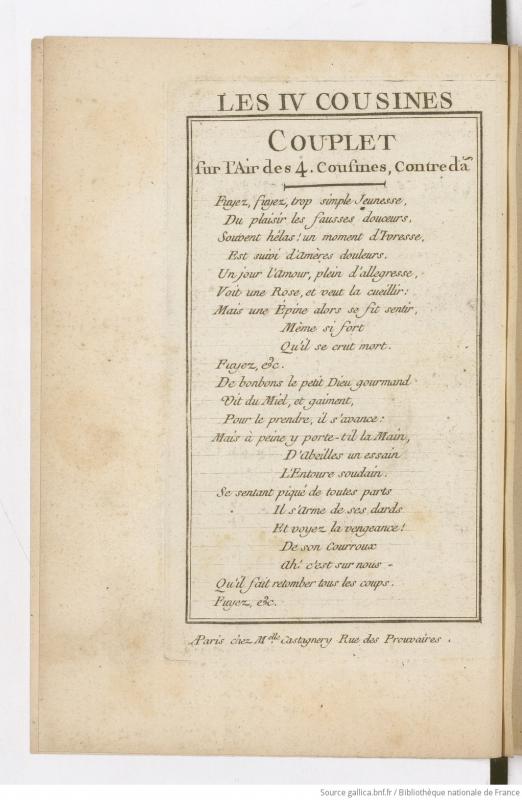 LES IV COUSINES
COUPLET
sur l'Air des 4. Cousines, Contred.ã
Fuyez, fuyez, trop simple Jeunesse,
Du plaisir les fausses douceurs,
Souvent hélas! un moment d'Ivresse,
Est suivi d'amères douleurs.
Un jour l'amour, plein d'allegresse,
Voit une Rose, et veut la cueillir:
Mais une Épine alors se fit sentir,
Même si fort
Qu'il se crut mort.
Fuyez, &c.
De bonbons le petit Dieu gourmand
Vit du Miel, et gaiment,
Pour le prendre, il s'avance:
Mais à peine y porte-t'il la Main,
D'abeilles un essain
L'Entoure soudain.
Se sentant piqué de toutes parts
Il s'Arme de ses dards
Et voyez la vengeance!
De son Courroux
Ah! c'est sur nous -
Qu'il fait retomber tous les coups.
Fuyez, &c.
Paris chez M.elle Castagnery Rue des Prouvaires.
Source gallica.bnf.fr / Bibliothèque nationale de France